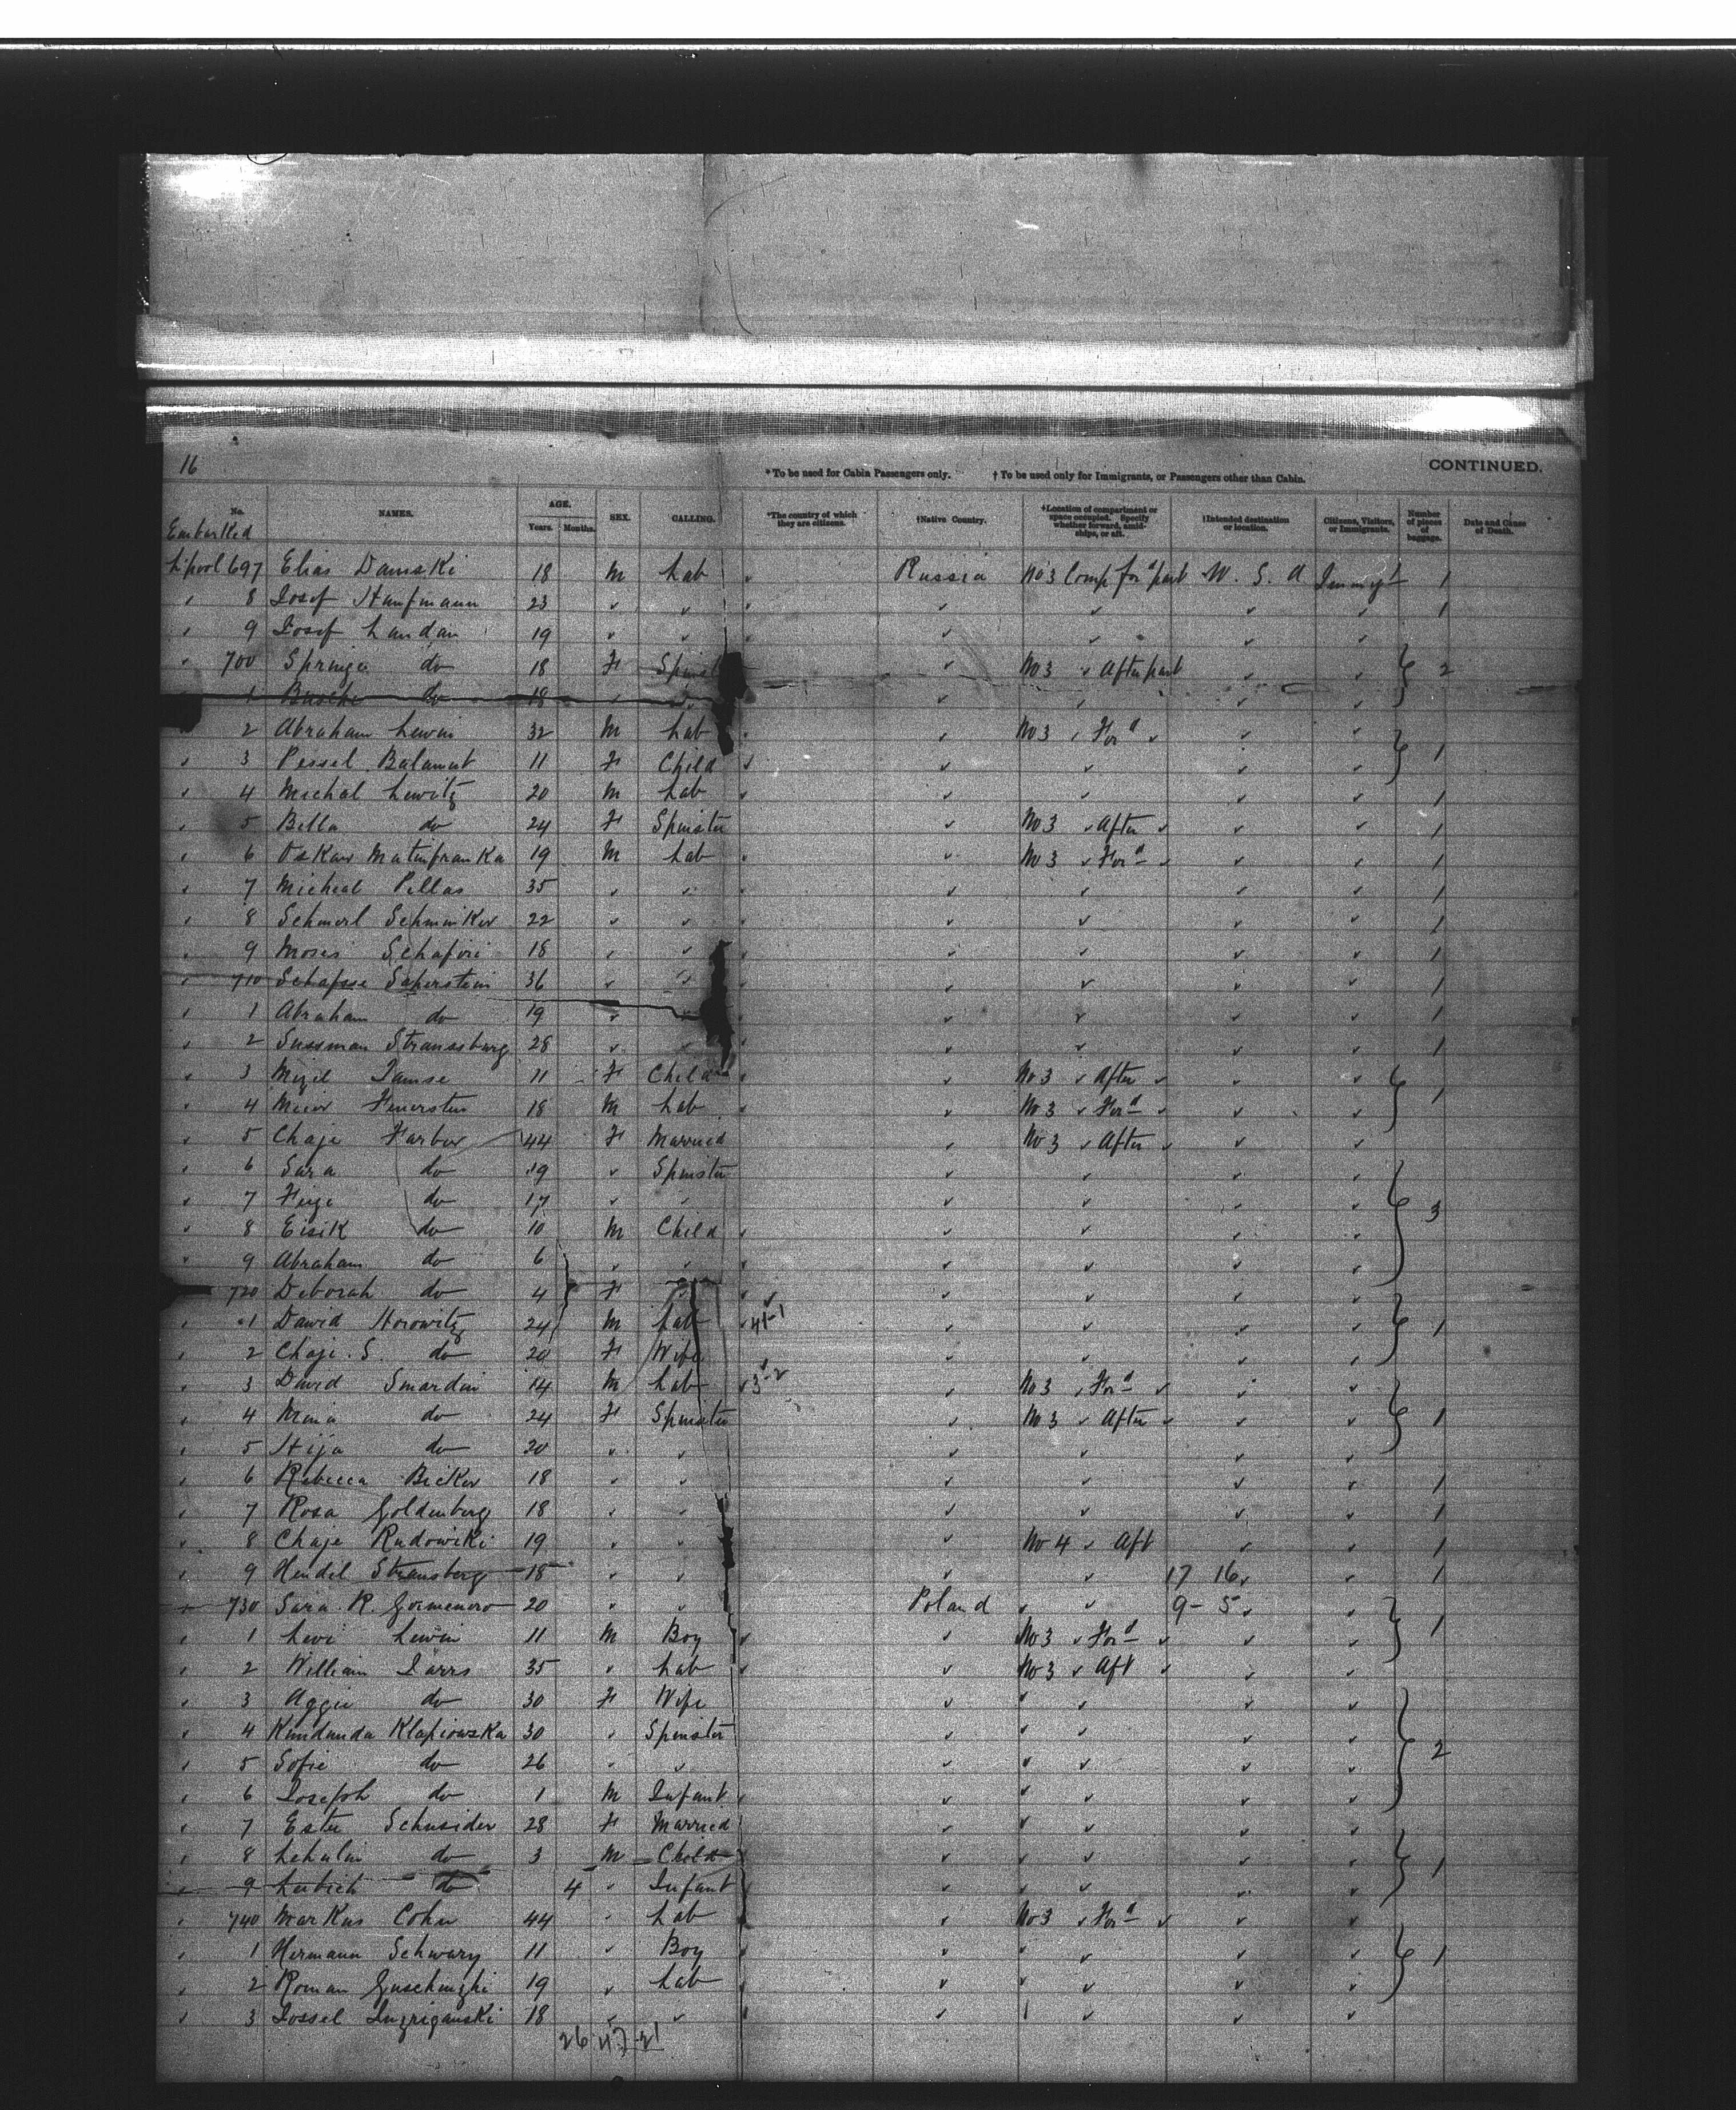 16
*To be used for Cabin Passengers only. †To be used only for Immigrants, or Passengers other than Cabin. CONTINUED.
No. NAMES. AGE. Years. Months. SEX. CALLING. *The country of which they are citizens. †Native Country. †Location of compartment or space occupied. Specify whether forward, amidships, or aft. †Intended destination or location. Citizens, Visitors, or Immigrants. Number of pieces of baggage. Date and Cause of Death.
Embarked
L'pool 697 Elias Damski 18 M Lab Russia No 3 Comp for'd part U. S. A Immigt 1
8 Josef Haufmann 23 1
9 Josef Landau 19
700 Springe do 18 F Spinst No 3 After part 2
1 Busche do 18
2 Abraham Lewin 32 M Lab No 3 For'd
3 Pessel Balamut 11 F Child 1
4 Michal Lewitz 20 M Lab 1
5 Bella do 24 F Spinster No 3 After 1
6 Oskar Matinfranka 19 M Lab No 3 For'd 1
7 Micheal Pillas 35 1
8 Schmerl 22 1
9 Moses Schafiri 18 1
710 Schafsse Saperstein 36 1
1 Abraham do 19 1
2 Sussman Straussburg 28 1
3 Mizil 11 F Child No 3 After
4 Meier Feuerstein 18 M Lab No 3 For'd 1
5 Chaje Farber 44 F Married No 3 After
6 Sara do 19 Spinster
7 Feige do 17 3
8 Eisik do 10 M Child
9 Abraham do 6
720 Deborah do 4 F
1 Dawid Horowitz 24 M Lab 41-1 1
2 Chaje S. do 20 F Wife
3 David Smardin 14 M Lab 3-2 No 3 For'd
4 Mina do 24 F Spinster No 3 After 1
5 Hija do 20
6 Rebecca Bicker 18 1
7 Rosa Goldenberg 18 1
8 Chaje Radowiki 19 No 4 Aft 1
9 Hendel Strausberg 18 17 16 1
730 Sara R. 20 Poland 9-5
1 Levi Lewin 11 M Boy No 3 For'd 1
2 William Jarrs 35 Lab No 3 Aft
3 Aggie do 30 F Wife
4 Kundunda Klapiowska 30 Spinster
5 Sofie do 26 2
6 Joseph do 1 M Infant
7 Ester Schneider 28 F Married
8 do 3 M Child 1
9 do 4 Infant
740 Markus Cohn 44 Lab No 3 For'd
1 Hermann Schwarz 11 Boy 1
2 Roman 19 Lab
3 Jossel 18
26 47 21